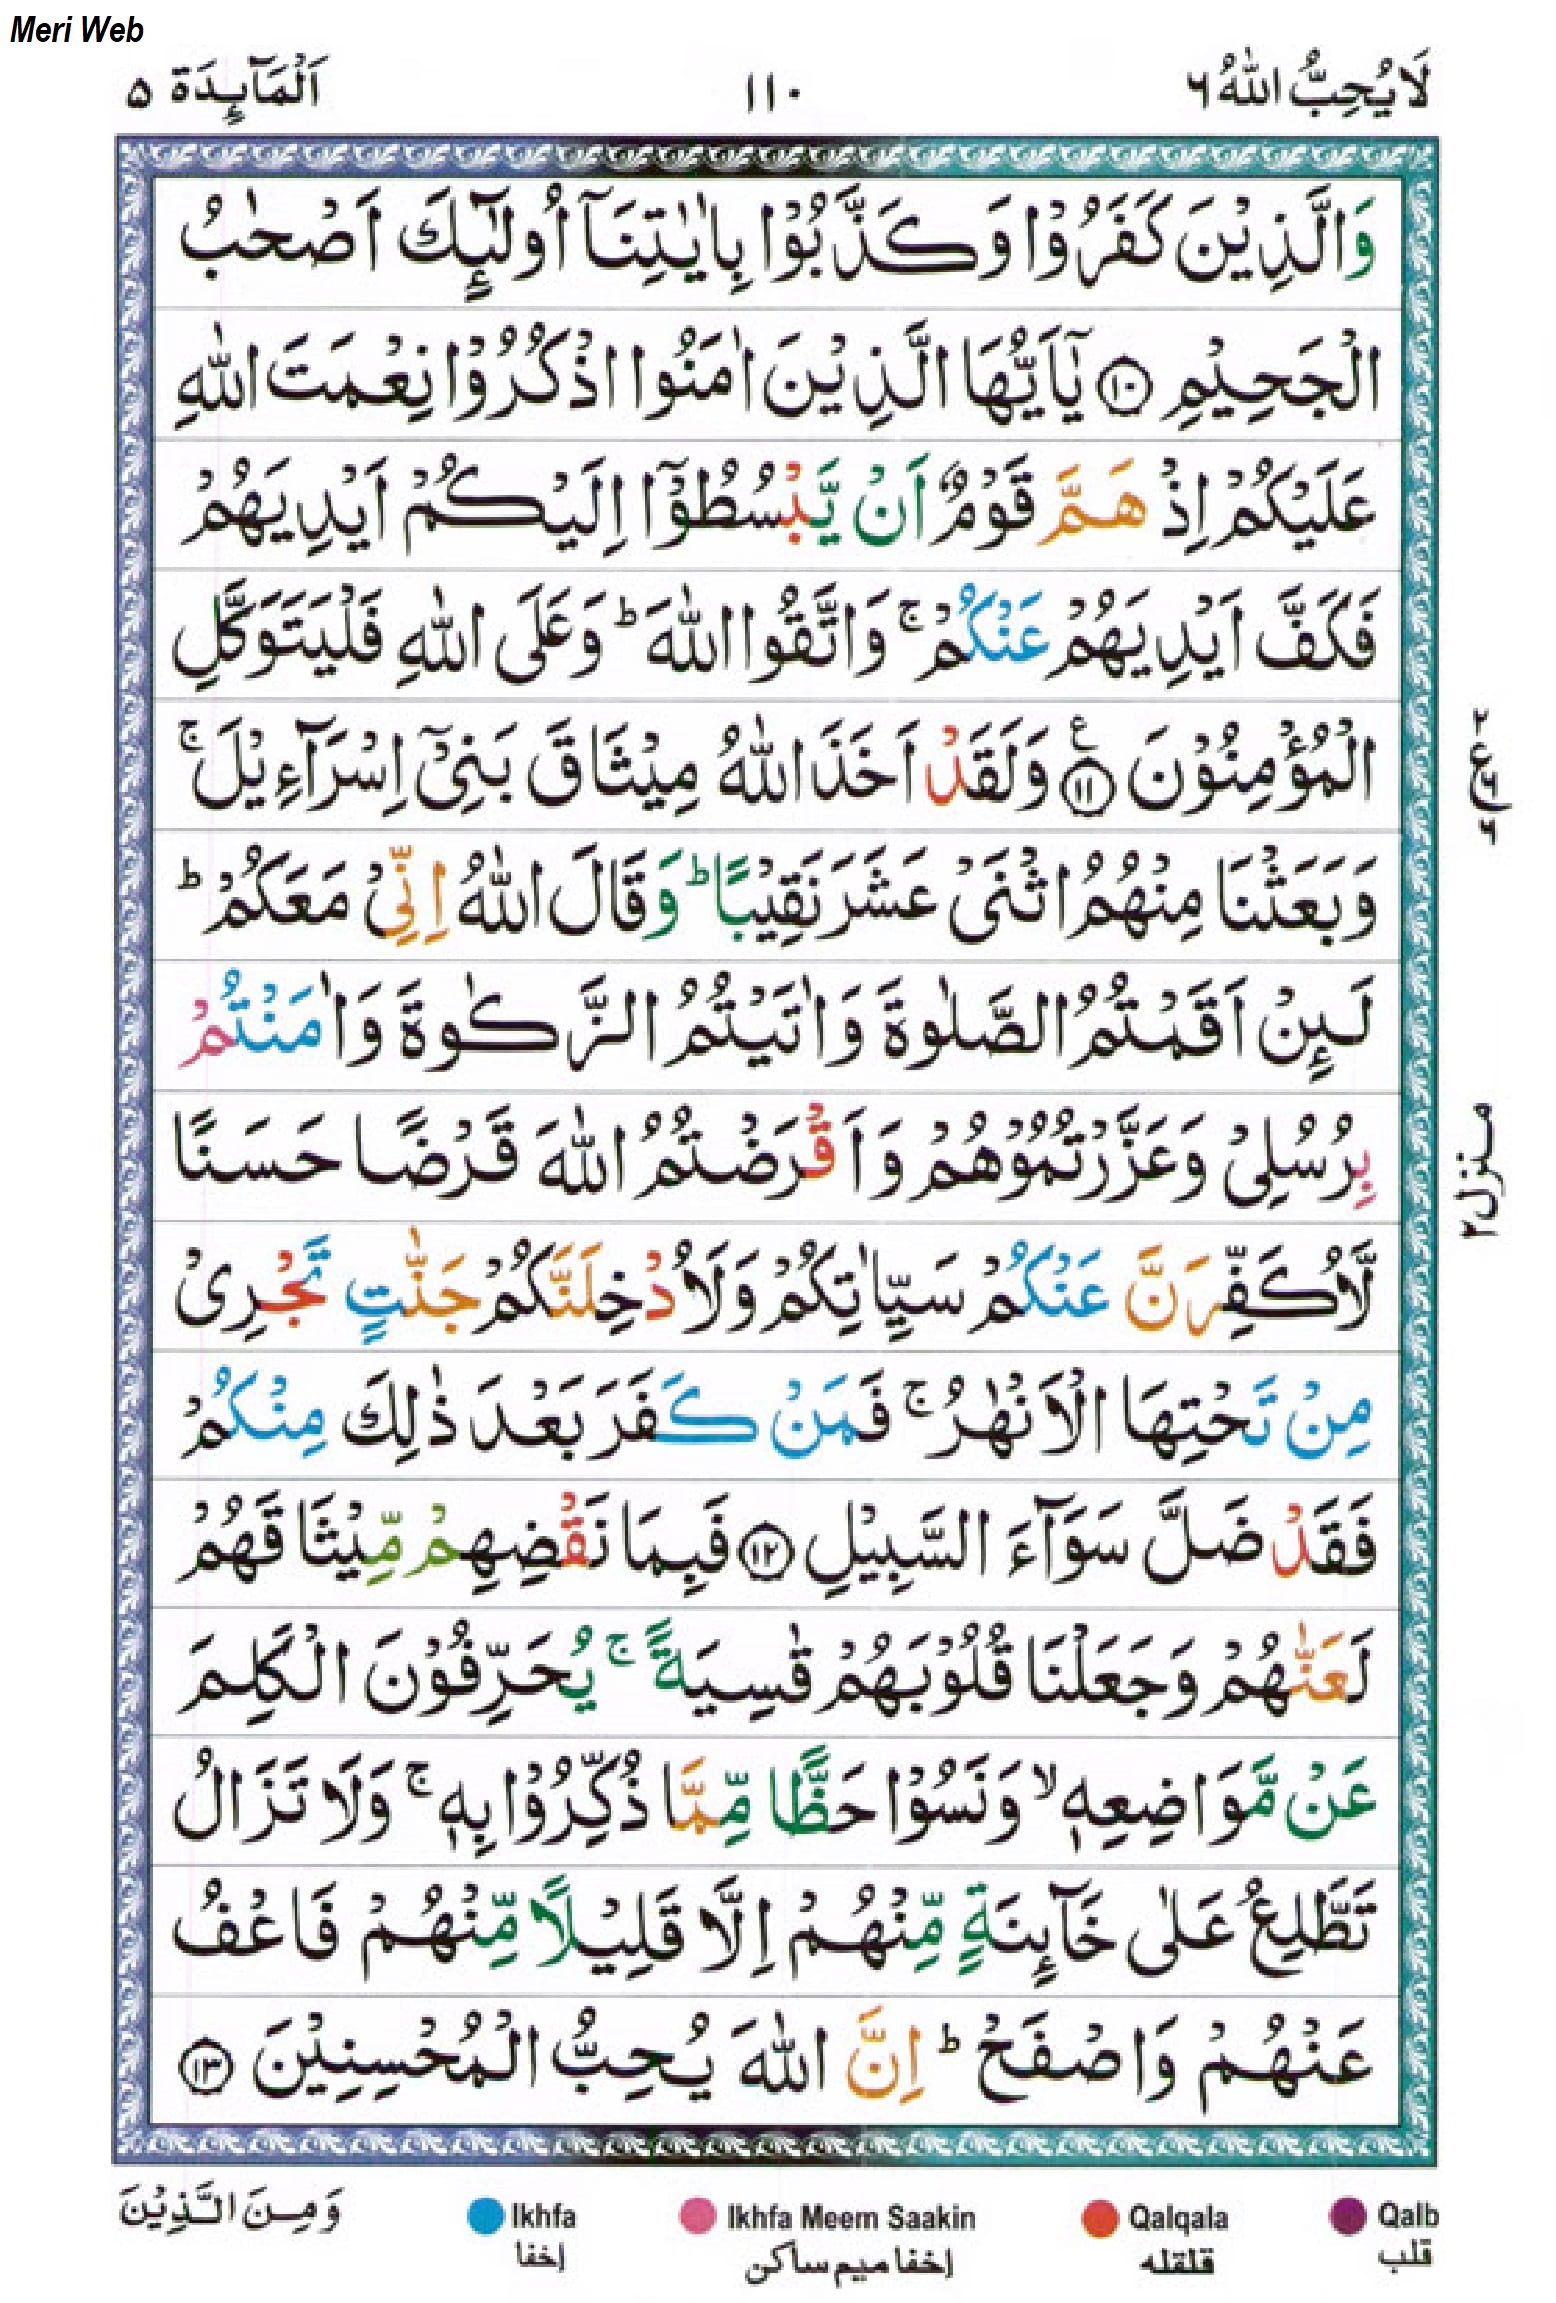 Meri Web
لَا يُحِبُّ اللّٰهُ ٦
١١٠
اَلْمَآئِدَة ٥
وَالَّذِيْنَ كَفَرُوْا وَكَذَّبُوْا بِاٰيٰتِنَآ اُولٰٓئِكَ اَصْحٰبُ
الْجَحِيْمِ ۝١٠ يٰٓاَيُّهَا الَّذِيْنَ اٰمَنُوا اذْكُرُوْا نِعْمَتَ اللّٰهِ
عَلَيْكُمْ اِذْ هَمَّ قَوْمٌ اَنْ يَّبْسُطُوْٓا اِلَيْكُمْ اَيْدِيَهُمْ
فَكَفَّ اَيْدِيَهُمْ عَنْكُمْ ۚ وَاتَّقُوا اللّٰهَ ؕ وَعَلَى اللّٰهِ فَلْيَتَوَكَّلِ
الْمُؤْمِنُوْنَ ۝١١ۧ وَلَقَدْ اَخَذَ اللّٰهُ مِيْثَاقَ بَنِيْٓ اِسْرَآءِيْلَ ۚ
وَبَعَثْنَا مِنْهُمُ اثْنَيْ عَشَرَ نَقِيْبًا ؕ وَقَالَ اللّٰهُ اِنِّيْ مَعَكُمْ ؕ
لَئِنْ اَقَمْتُمُ الصَّلٰوةَ وَاٰتَيْتُمُ الزَّكٰوةَ وَاٰمَنْتُمْ
بِرُسُلِيْ وَعَزَّرْتُمُوْهُمْ وَاَقْرَضْتُمُ اللّٰهَ قَرْضًا حَسَنًا
لَّاُكَفِّرَنَّ عَنْكُمْ سَيِّاٰتِكُمْ وَلَاُدْخِلَنَّكُمْ جَنّٰتٍ تَجْرِيْ
مِنْ تَحْتِهَا الْاَنْهٰرُ ۚ فَمَنْ كَفَرَ بَعْدَ ذٰلِكَ مِنْكُمْ
فَقَدْ ضَلَّ سَوَآءَ السَّبِيْلِ ۝١٢ فَبِمَا نَقْضِهِمْ مِّيْثَاقَهُمْ
لَعَنّٰهُمْ وَجَعَلْنَا قُلُوْبَهُمْ قٰسِيَةً ۚ يُحَرِّفُوْنَ الْكَلِمَ
عَنْ مَّوَاضِعِهٖ ۙ وَنَسُوْا حَظًّا مِّمَّا ذُكِّرُوْا بِهٖ ۚ وَلَا تَزَالُ
تَطَّلِعُ عَلٰى خَآئِنَةٍ مِّنْهُمْ اِلَّا قَلِيْلًا مِّنْهُمْ فَاعْفُ
عَنْهُمْ وَاصْفَحْ ؕ اِنَّ اللّٰهَ يُحِبُّ الْمُحْسِنِيْنَ ۝١٣
منزل ٢
وَمِنَ الَّذِيْنَ
Ikhfa
إخفا
Ikhfa Meem Saakin
إخفا ميم ساكن
Qalqala
قلقله
Qalb
قلب